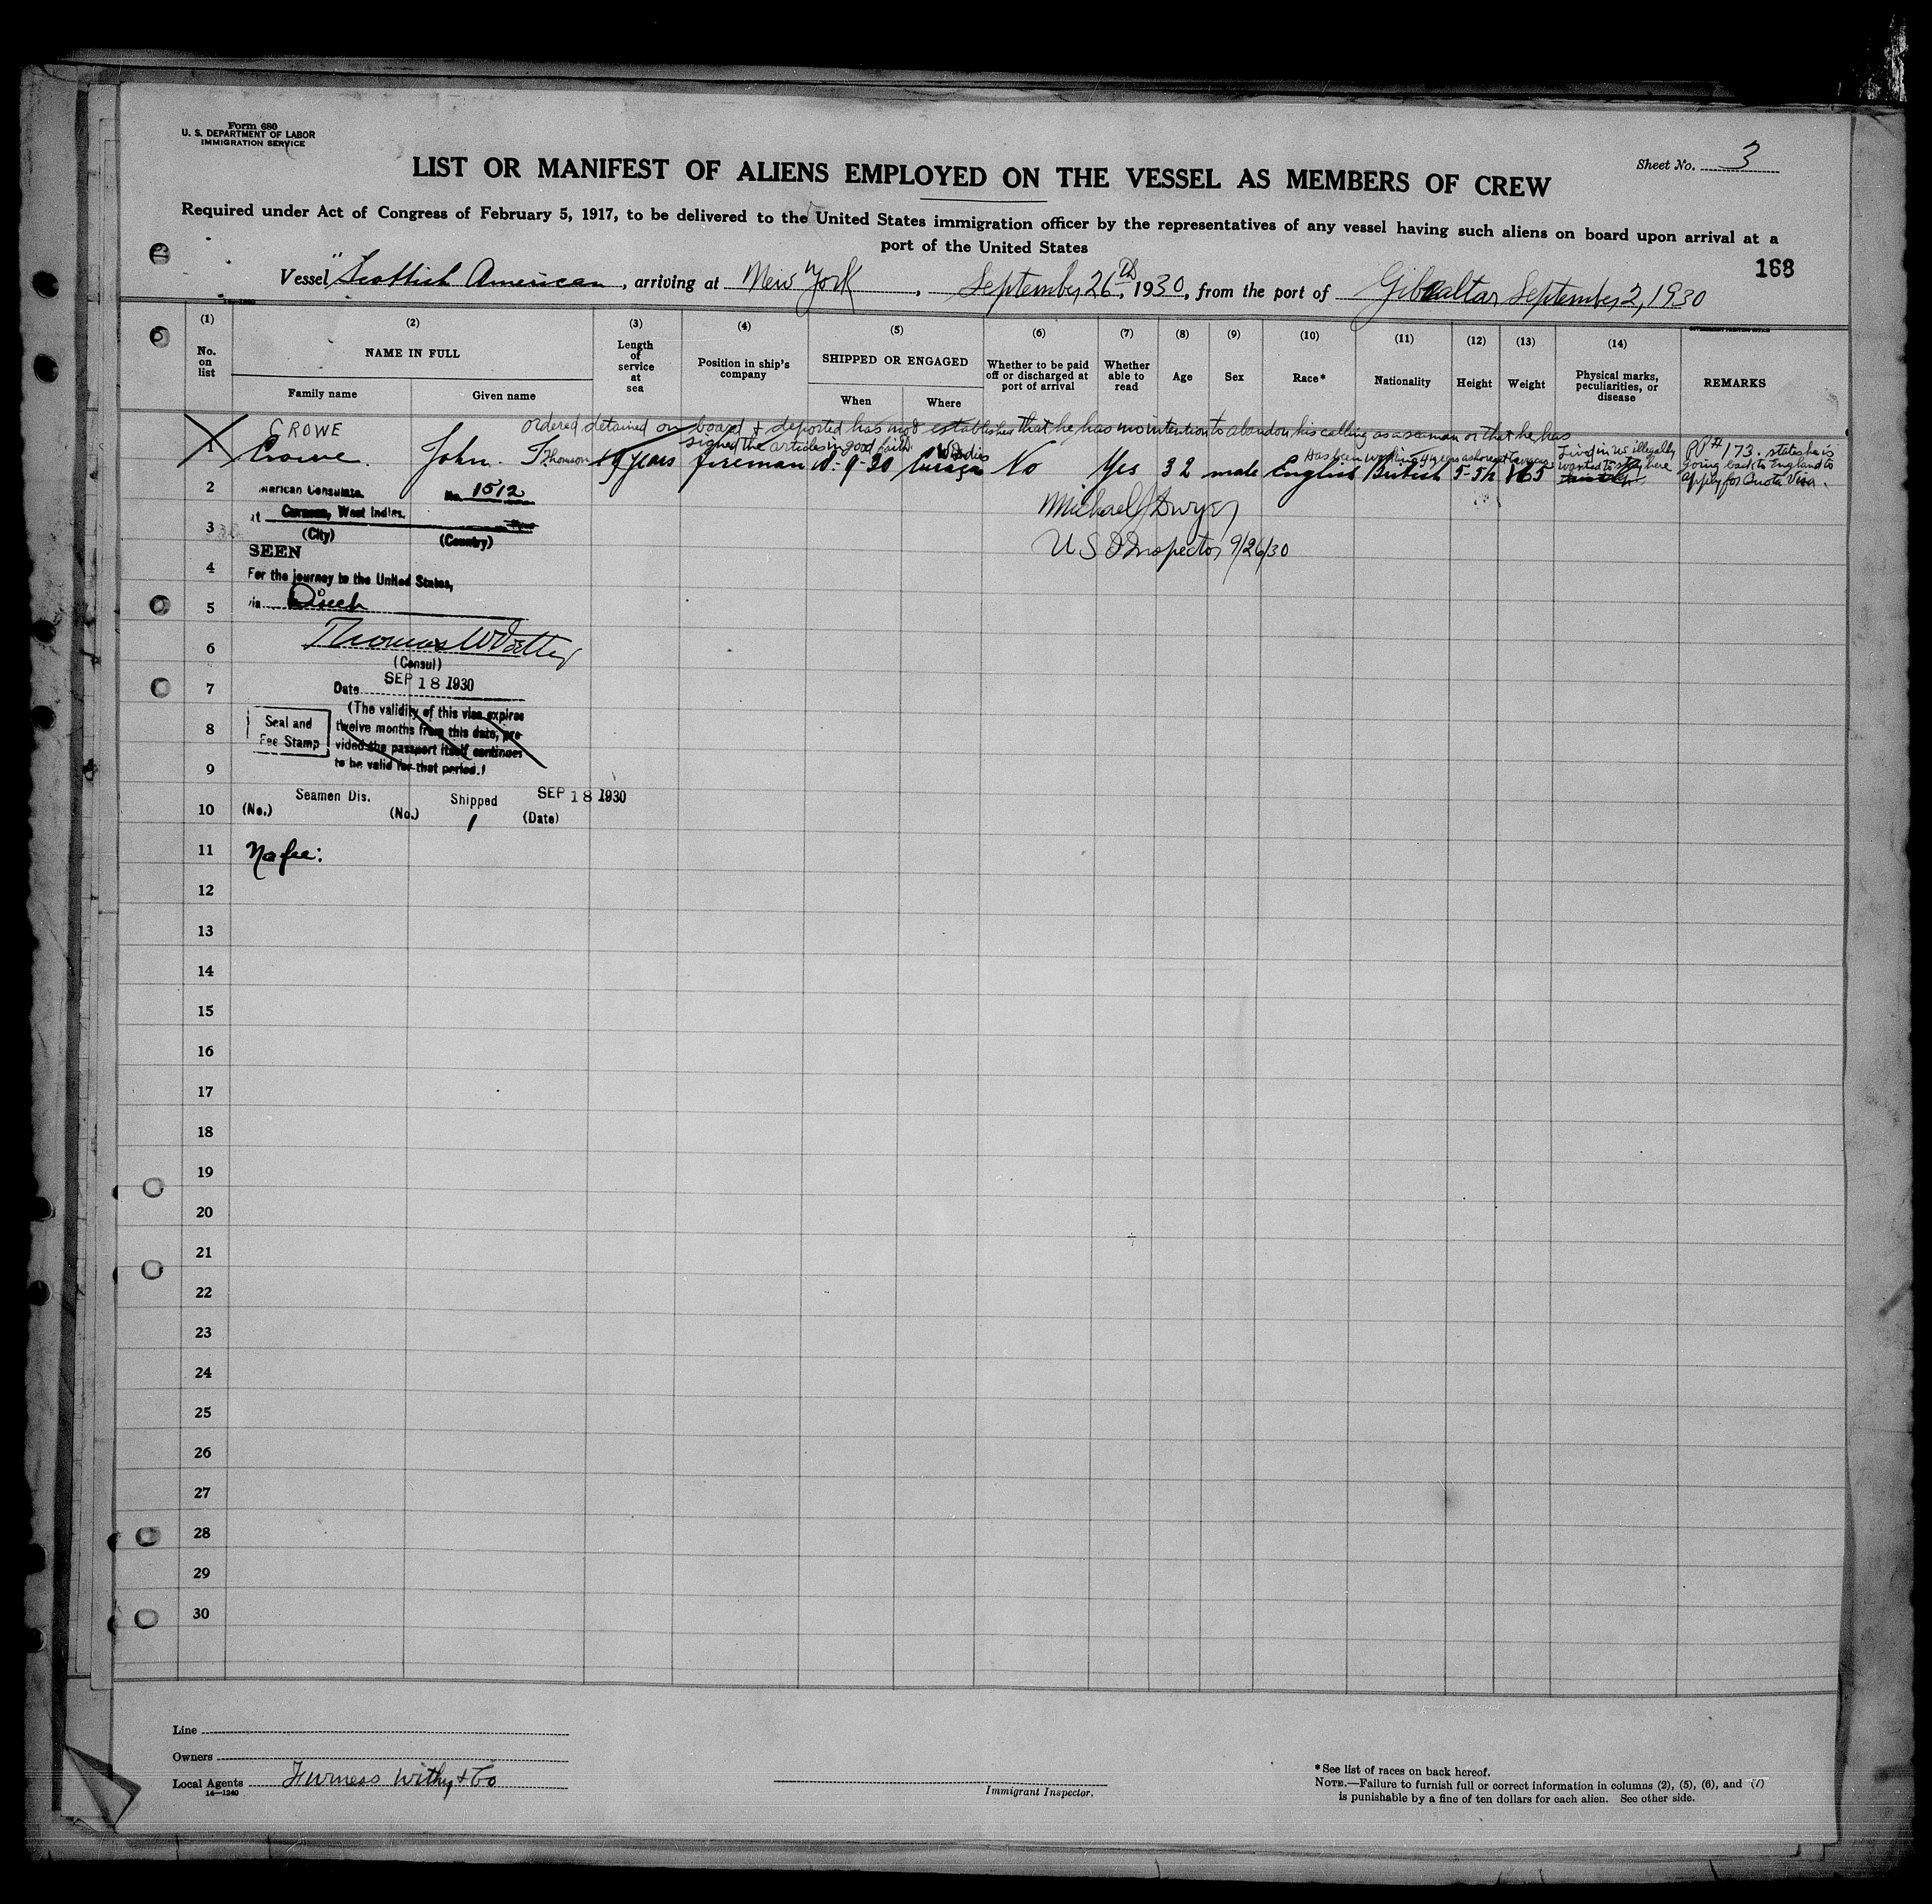 Form 680
U. S. DEPARTMENT OF LABOR
IMMIGRATION SERVICE
Sheet No. 3
LIST OR MANIFEST OF ALIENS EMPLOYED ON THE VESSEL AS MEMBERS OF CREW
Required under Act of Congress of February 5, 1917, to be delivered to the United States immigration officer by the representatives of any vessel having such aliens on board upon arrival at a
port of the United States
168
Vessel "Scottish American", arriving at New York, September 26th, 1930, from the port of Gibraltar September 2, 1930
(1) (2) (3) (4) (5) (6) (7) (8) (9) (10) (11) (12) (13) (14)
No. on list
NAME IN FULL
Family name
Given name
Length of service at sea
Position in ship's company
SHIPPED OR ENGAGED
When
Where
Whether to be paid off or discharged at port of arrival
Whether able to read
Age
Sex
Race*
Nationality
Height
Weight
Physical marks, peculiarities, or disease
REMARKS
ordered detained on board & deported has not established that he has no intention to abandon his calling as a seaman or that he has
signed the articles in good faith
CROWE
1 Crowe. John. Thomson 19 years fireman 18-9-30 Curaçao W Indies No Yes 32 male English British 5-5½ 165
Has been working 4 years ashore at
Lived in US illegally
wanted to stay here
PP # 173. states he is
going back to England to
apply for Quota Visa.
Michael J Dwyer
U S I Inspector 9/26/30
2
American Consulate.
No. 1512
3
at Curacao, West Indies.
(City) (Country)
SEEN
4
For the journey to the United States,
5
via Direct
6
Thomas W Voetter
(Consul)
7
Date SEP 18 1930
8
Seal and
Fee Stamp
(The validity of this visa expires
twelve months from this date, pro-
vided the passport itself continues
to be valid for that period.)
9
Seamen Dis. Shipped SEP 18 1930
10
(No.) (No.) 1 (Date)
11
No fee:
12
13
14
15
16
17
18
19
20
21
22
23
24
25
26
27
28
29
30
Line
Owners
Local Agents Furness Withy & Co
14—1240
Immigrant Inspector.
* See list of races on back hereof.
NOTE.—Failure to furnish full or correct information in columns (2), (5), (6), and (7)
is punishable by a fine of ten dollars for each alien. See other side.